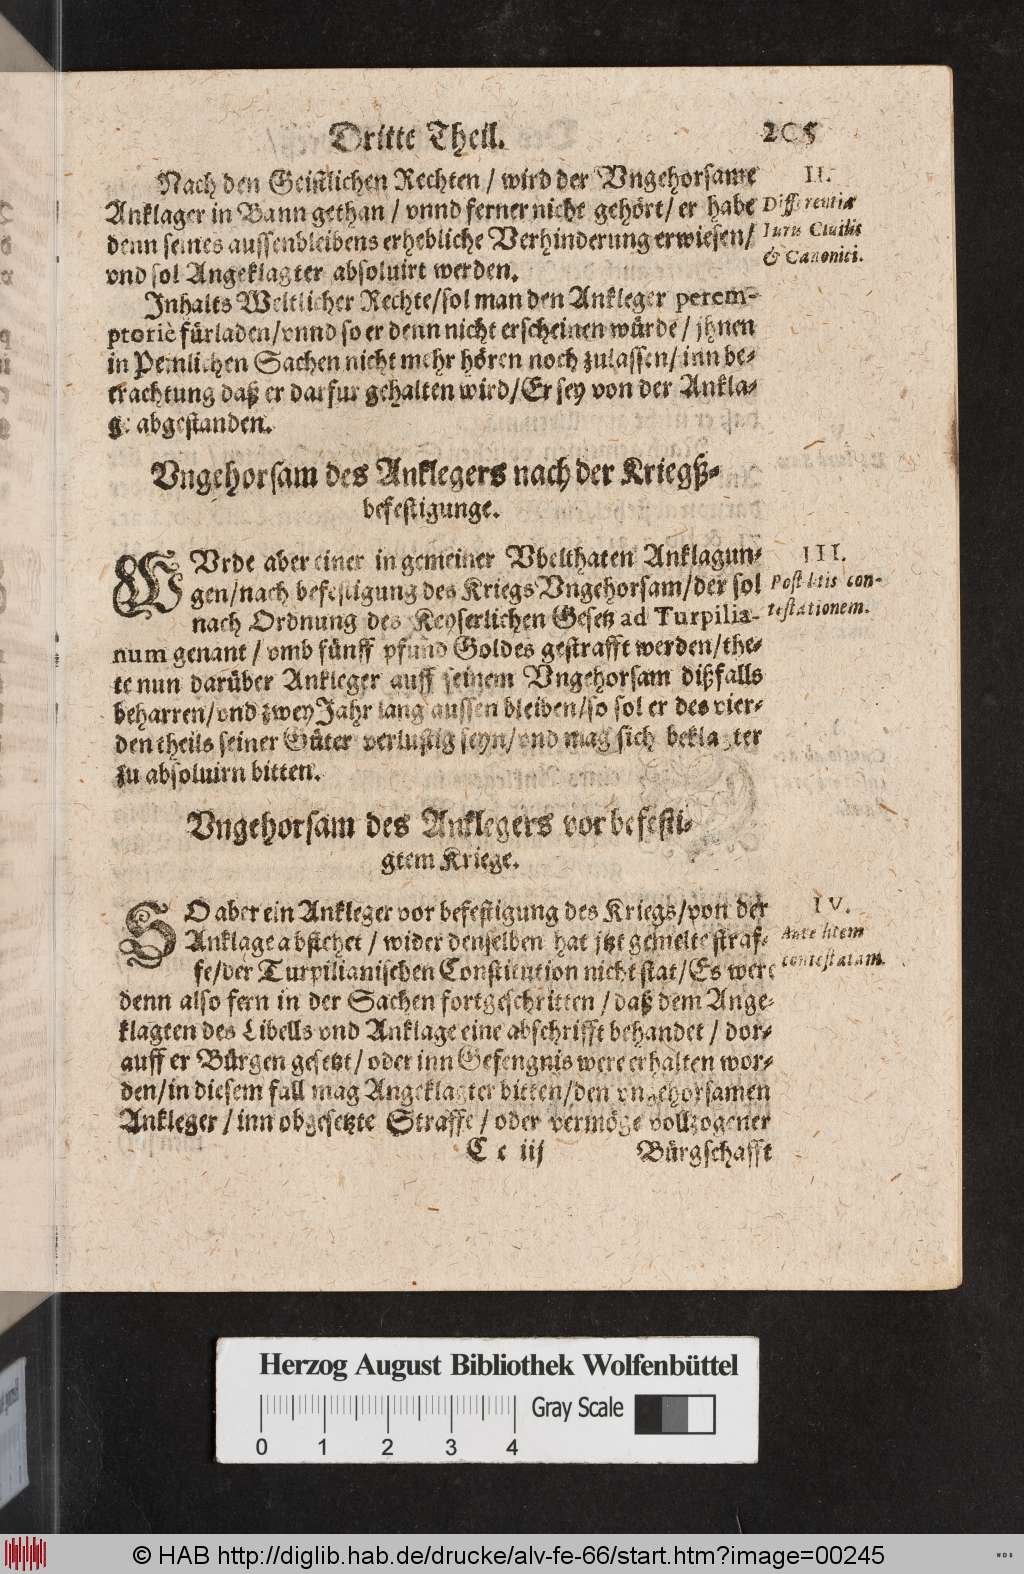 Dritte Theil. 205
Nach den Geistlichen Rechten / wird der Vngehorsame
Anklager in Bann gethan / vnnd ferner nicht gehört / er habe
denn seines aussenbleibens erhebliche Verhinderung erwiesen /
vnd sol Angeklagter absoluirt werden.
II.
Differentiæ
Iuris Ciuilis
& Canonici.
Inhalts Weltlicher Rechte / sol man den Ankleger perem-
ptoriè fürladen / vnnd so er denn nicht erscheinen würde / jhnen
in Peinlichen Sachen nicht mehr hören noch zulassen / inn be-
trachtung daß er darfur gehalten wird / Er sey von der Ankla-
ge abgestanden.
Vngehorsam des Anklegers nach der Kriegß-
befestigunge.
WVrde aber einer in gemeiner Vbelthaten Anklagun-
gen / nach befestigung des Kriegs Vngehorsam / der sol
nach Ordnung des Keyserlichen Gesetz ad Turpilia-
num genant / vmb fünff pfund Goldes gestrafft werden / the-
te nun darüber Ankleger auff seinem Vngehorsam dißfalls
beharren / vnd zwey Jahr lang aussen bleiben / so sol er des vier-
den theils seiner Güter verlustig seyn / vnd mag sich beklagter
zu absoluirn bitten.
III.
Post litis con-
testationem.
Vngehorsam des Anklegers vor befesti-
gtem Kriege.
SO aber ein Ankleger vor befestigung des Kriegs / von der
Anklage abstehet / wider denselben hat jtzt gemelte straf-
fe / der Turpilianischen Constitution nicht stat / Es were
denn also fern in der Sachen fortgeschritten / daß dem Ange-
klagten des Libells vnd Anklage eine abschrifft behandet / dor-
auff er Bürgen gesetzt / oder inn Gefengnis were erhalten wor-
den / in diesem fall mag Angeklagter bitten / den vngehorsamen
Ankleger / inn obgesetzte Straffe / oder vermöge vollzogener
IV.
Ante litem
contestatam.
Cc iij Bürgschafft
Herzog August Bibliothek Wolfenbüttel
Gray Scale
0 1 2 3 4
© HAB http://diglib.hab.de/drucke/alv-fe-66/start.htm?image=00245